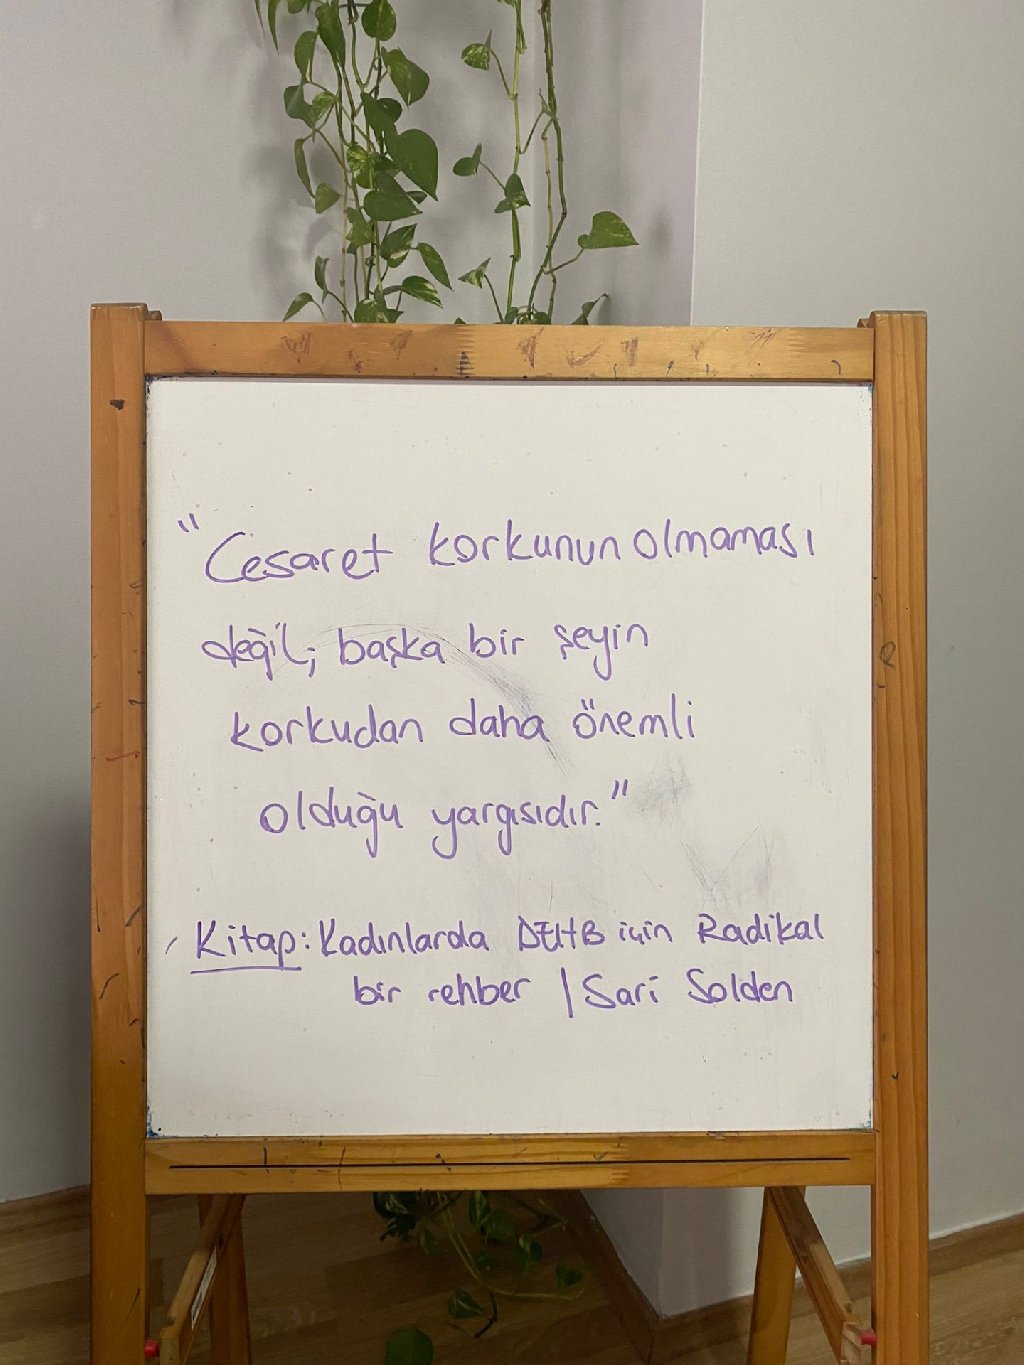 "Cesaret korkunun olmaması
değil, başka bir şeyin
korkudan daha önemli
olduğu yargısıdır."
Kitap: Kadınlarda DEHB için Radikal
bir rehber | Sari Solden